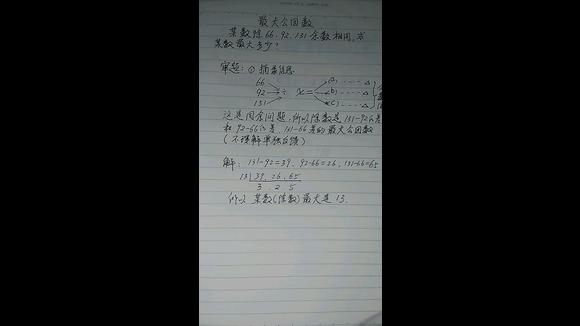 最大公因数
某数除66、92、131余数相同,求
某数最大多少?
审题:① 摘条信息
66
92 ÷ x =
131
(a) ---- △
(b) ---- △
(c) ---- △
这是同余问题,所以除数是131-92的差
和92-66的差、131-66差的最大公因数
(不理解单独反馈)
解: 131-92=39、92-66=26、131-66=65
13 39、26、65
3 、2 、5
所以 某数(除数)最大是13.